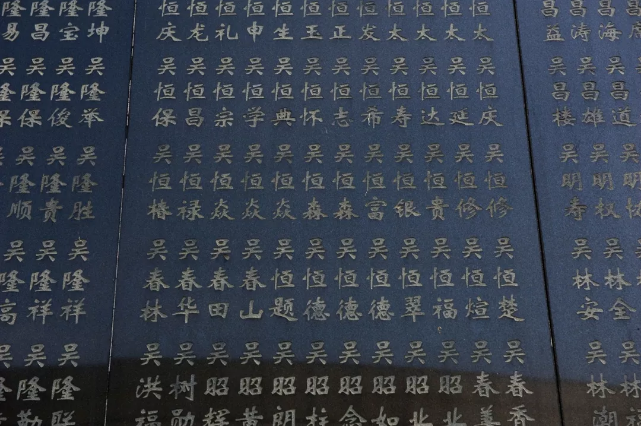 隆易 隆昌 隆宝 隆坤
吴隆保 吴隆俊 吴隆举
吴隆顺 吴隆贵 吴隆胜
吴隆高 吴隆祥 吴隆祥
吴隆勤 吴隆联
恒庆 恒龙 恒礼 恒申 恒生 恒玉 恒正 恒发 恒太 恒太 恒太 恒太
吴恒保 吴恒昌 吴恒宗 吴恒学 吴恒典 吴恒怀 吴恒志 吴恒希 吴恒寿 吴恒达 吴恒延 吴恒庆
吴恒椿 吴恒禄 吴恒焱 吴恒焱 吴恒焱 吴恒森 吴恒森 吴恒富 吴恒银 吴恒贵 吴恒修 吴恒修
吴春林 吴春华 吴春田 吴春山 吴恒题 吴恒德 吴恒德 吴恒德 吴恒翠 吴恒福 吴恒煊 吴恒楚
吴洪福 吴树勋 吴昭辉 吴昭黄 吴昭朗 吴昭柱 吴昭念 吴昭如 吴昭北 吴昭北 吴春美 吴春香
昌益 昌涛 昌海
吴昌楼 吴昌雄 吴昌道
吴明寿 吴明权
吴林安 吴林全
吴林潮